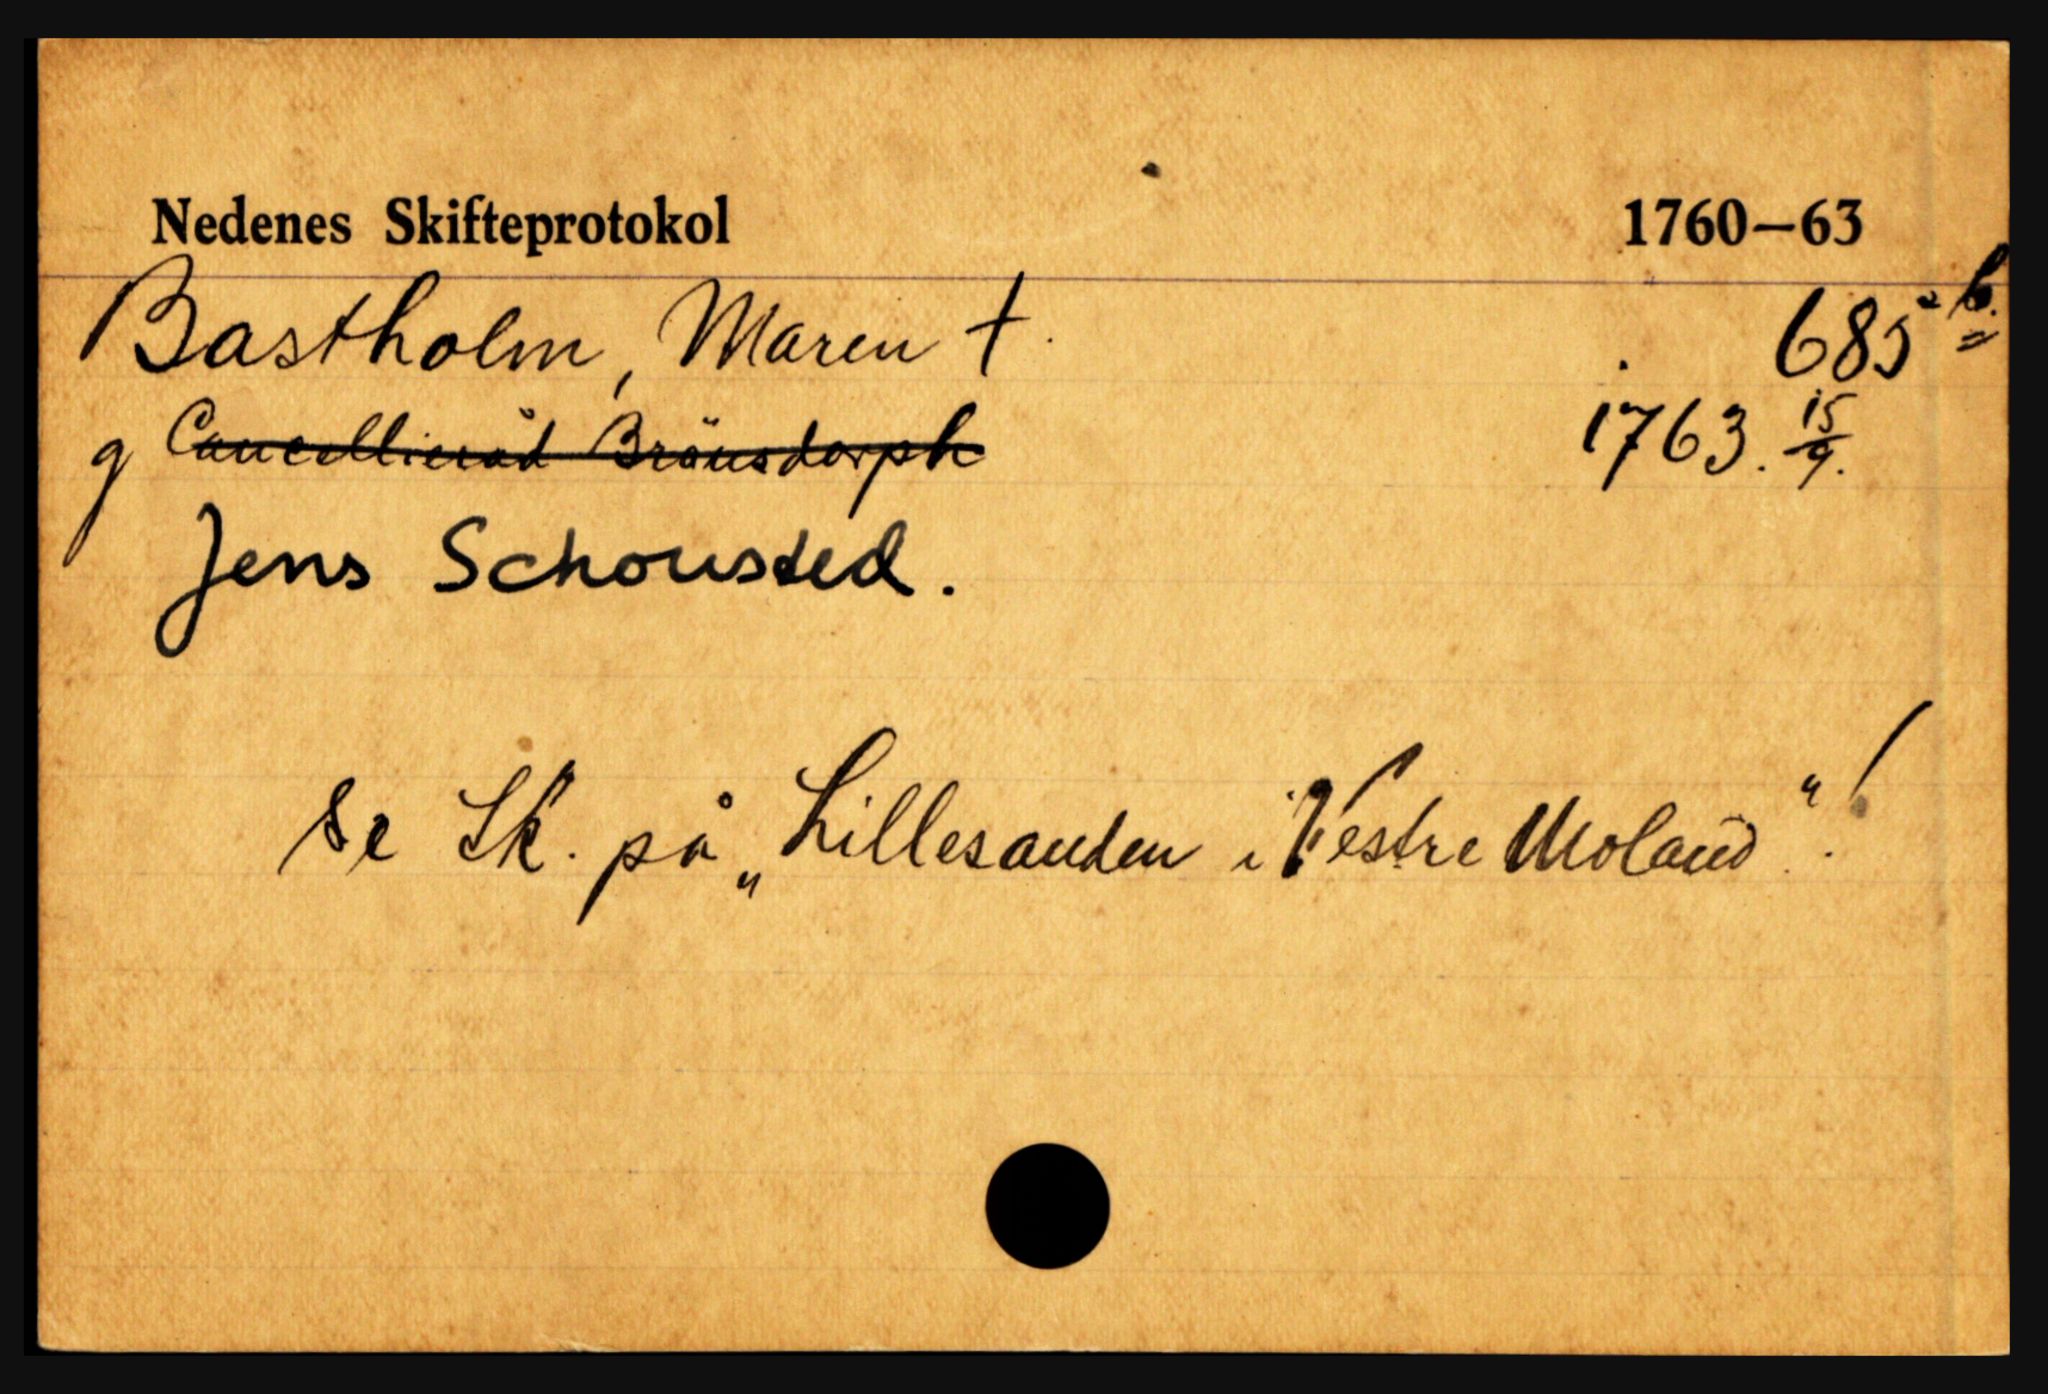 Nedenes Skifteprotokol 1760—63
Bastholm, Maren † 685 b.
g Cancellieråd Brönsdorph 1763. 15/9.
Jens Schousted.
se Sk. på „Lillesanden i Vestre Moland“!